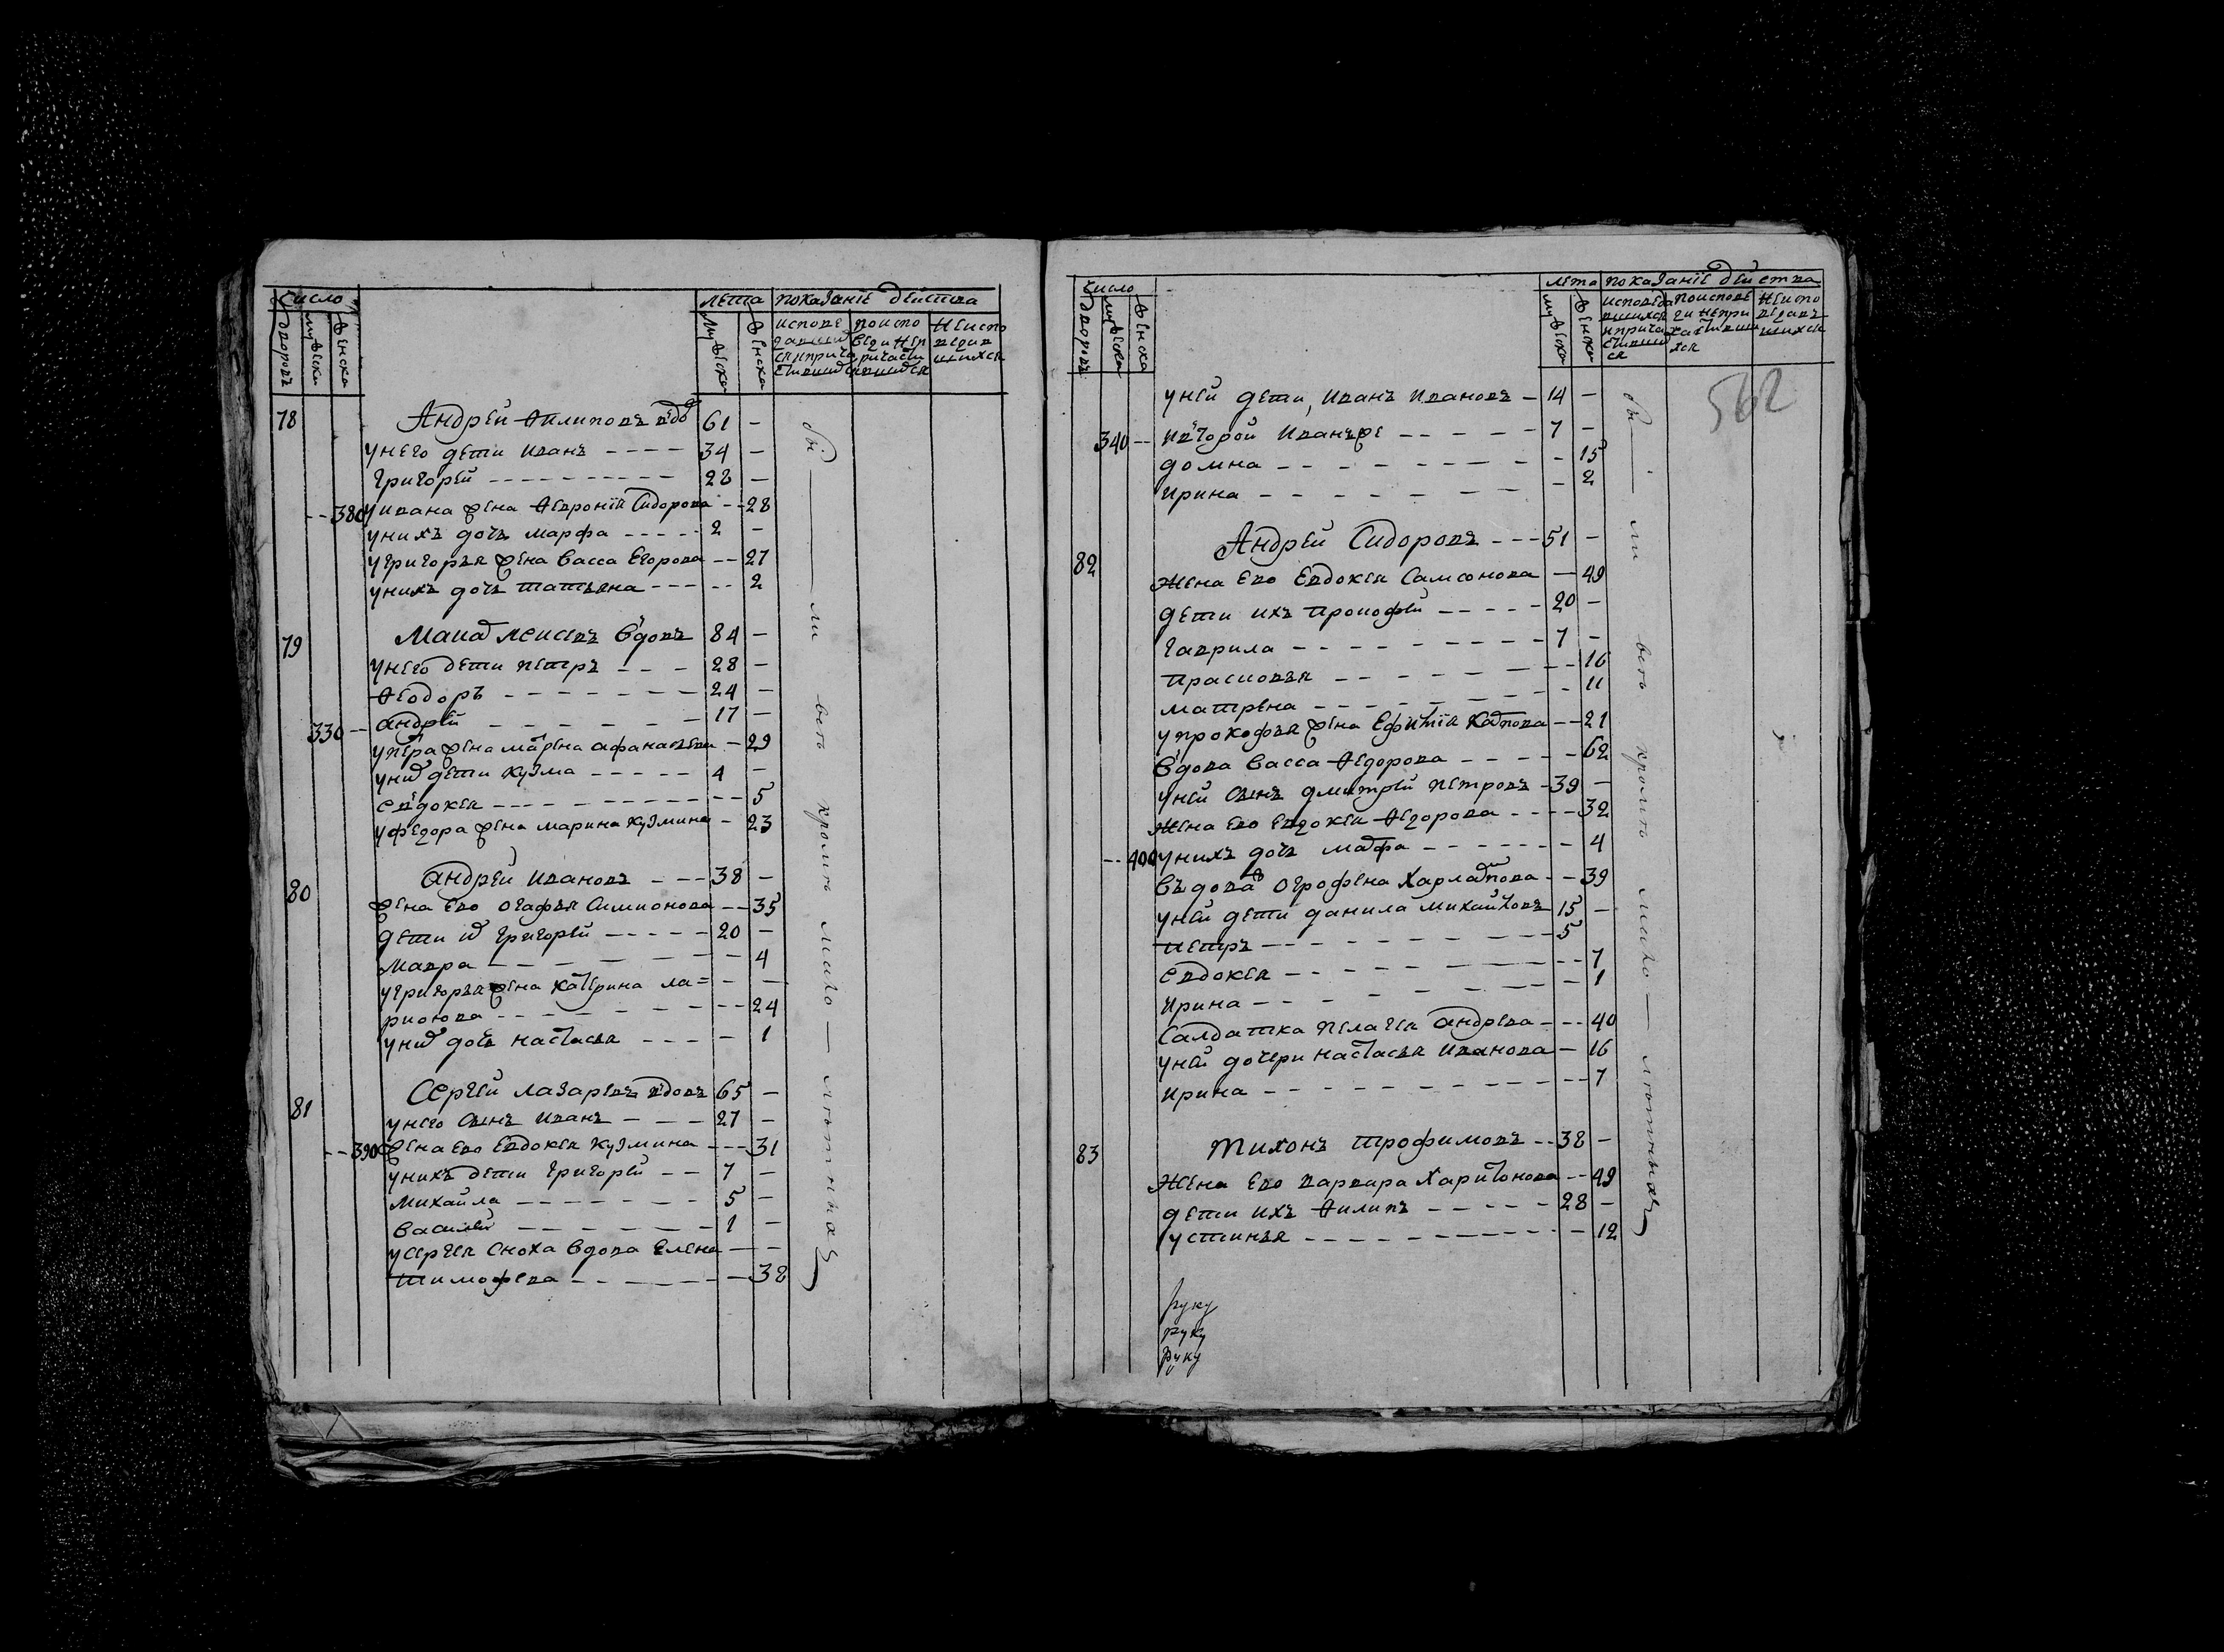 Число
дворовъ
мужеска
женска
лета
показанїе действа
мужеска
женска
исповедавшихся и причастившихся
по исповеди не причастившихся
неисповедавшихся
78 Андрей Филиповъ вдов 61 —
у него дети Иванъ — — — — 34 —
Григорей — — — — 28 —
-- 380 у Ивана жена Феврониїя Сидорова -- 28
у нихъ дочь Марфа — — — 2 —
у Григорья жена Васса Егорова -- 27
у нихъ дочь Татьяна — — — 2
79 вдовъ 84 —
у него дети Петръ — — — 28 —
Феодоръ — — — — 24 —
330 — Андрей — — — — 17 —
у Петра жена Матрена Афанасева — 29
у них дети Кузма — — — 4 —
Евдокея — — — — 5
у Федора жена Марина Кузмина — 23
80 Андрей Ивановъ — — — 38 —
жена ево Огафья Симионова — — 35
дети их Григорей — — — 20 —
Мавра — — — — 4
у Григорья жена Катерина ла= — —
риоюва — — — — 24
у них дочь Настасья — — — 1
81 Сергей Лазаревъ вдовъ 65 —
у него сынъ Иванъ — — — 27 —
-- 390 жена ево Евдокея Кузмина — — — 31
у нихъ дети Григорей — — 7 —
Михайла — — — — 5 —
Василей — — — — 1 —
у Сергея сноха вдова Елена — —
Тимофева — — — — 38
бы — ли вси кроме мало — летныхъ
562
Число
дворовъ
мужеска
женска
лета
показанїе действа
мужеска
женска
исповедавшихся и причастившихся
по исповеди не причастившихся
неисповедавшихся
у ней дети, Иванъ Ивановъ — 14 —
340 -- и второй Иванъ же — — — 7 —
Домна — — — — 15
Ирина — — — — 2
82 Андрей Сидоровъ — — — 51 —
жена ево Евдокея Самсонова — 49
дети ихъ Прокофей — — — 20 —
Гаврила — — — — 7 —
Прасковья — — — — 16
Матрена — — — — 11
у Прокофья жена Ефимїя Карпова — — 21
вдова Васса Федорова — — — 62
у ней сынъ Дмитрей Петровъ — 39 —
жена ево Евдокея Федорова — — — 32
-- 400 у нихъ дочь Марфа — — — 4
въдова Огрофена Харлампова — — 39
у ней дети Данила Михайловъ 15 —
Петръ — — — — 5
Евдокея — — — — 7
Ирина — — — — 1
Салдатка Пелагея Андрева — — 40
у ней дочери Настасья Иванова — 16
Ирина — — — — 7
83 Тихонъ Трофимовъ — — 38 —
жена ево Варвара Харитонова — — 49
дети ихъ Филипъ — — — 28 —
Устинья — — — — 12
бы — ли вси кроме мало — летныхъ
руку
руку
руку